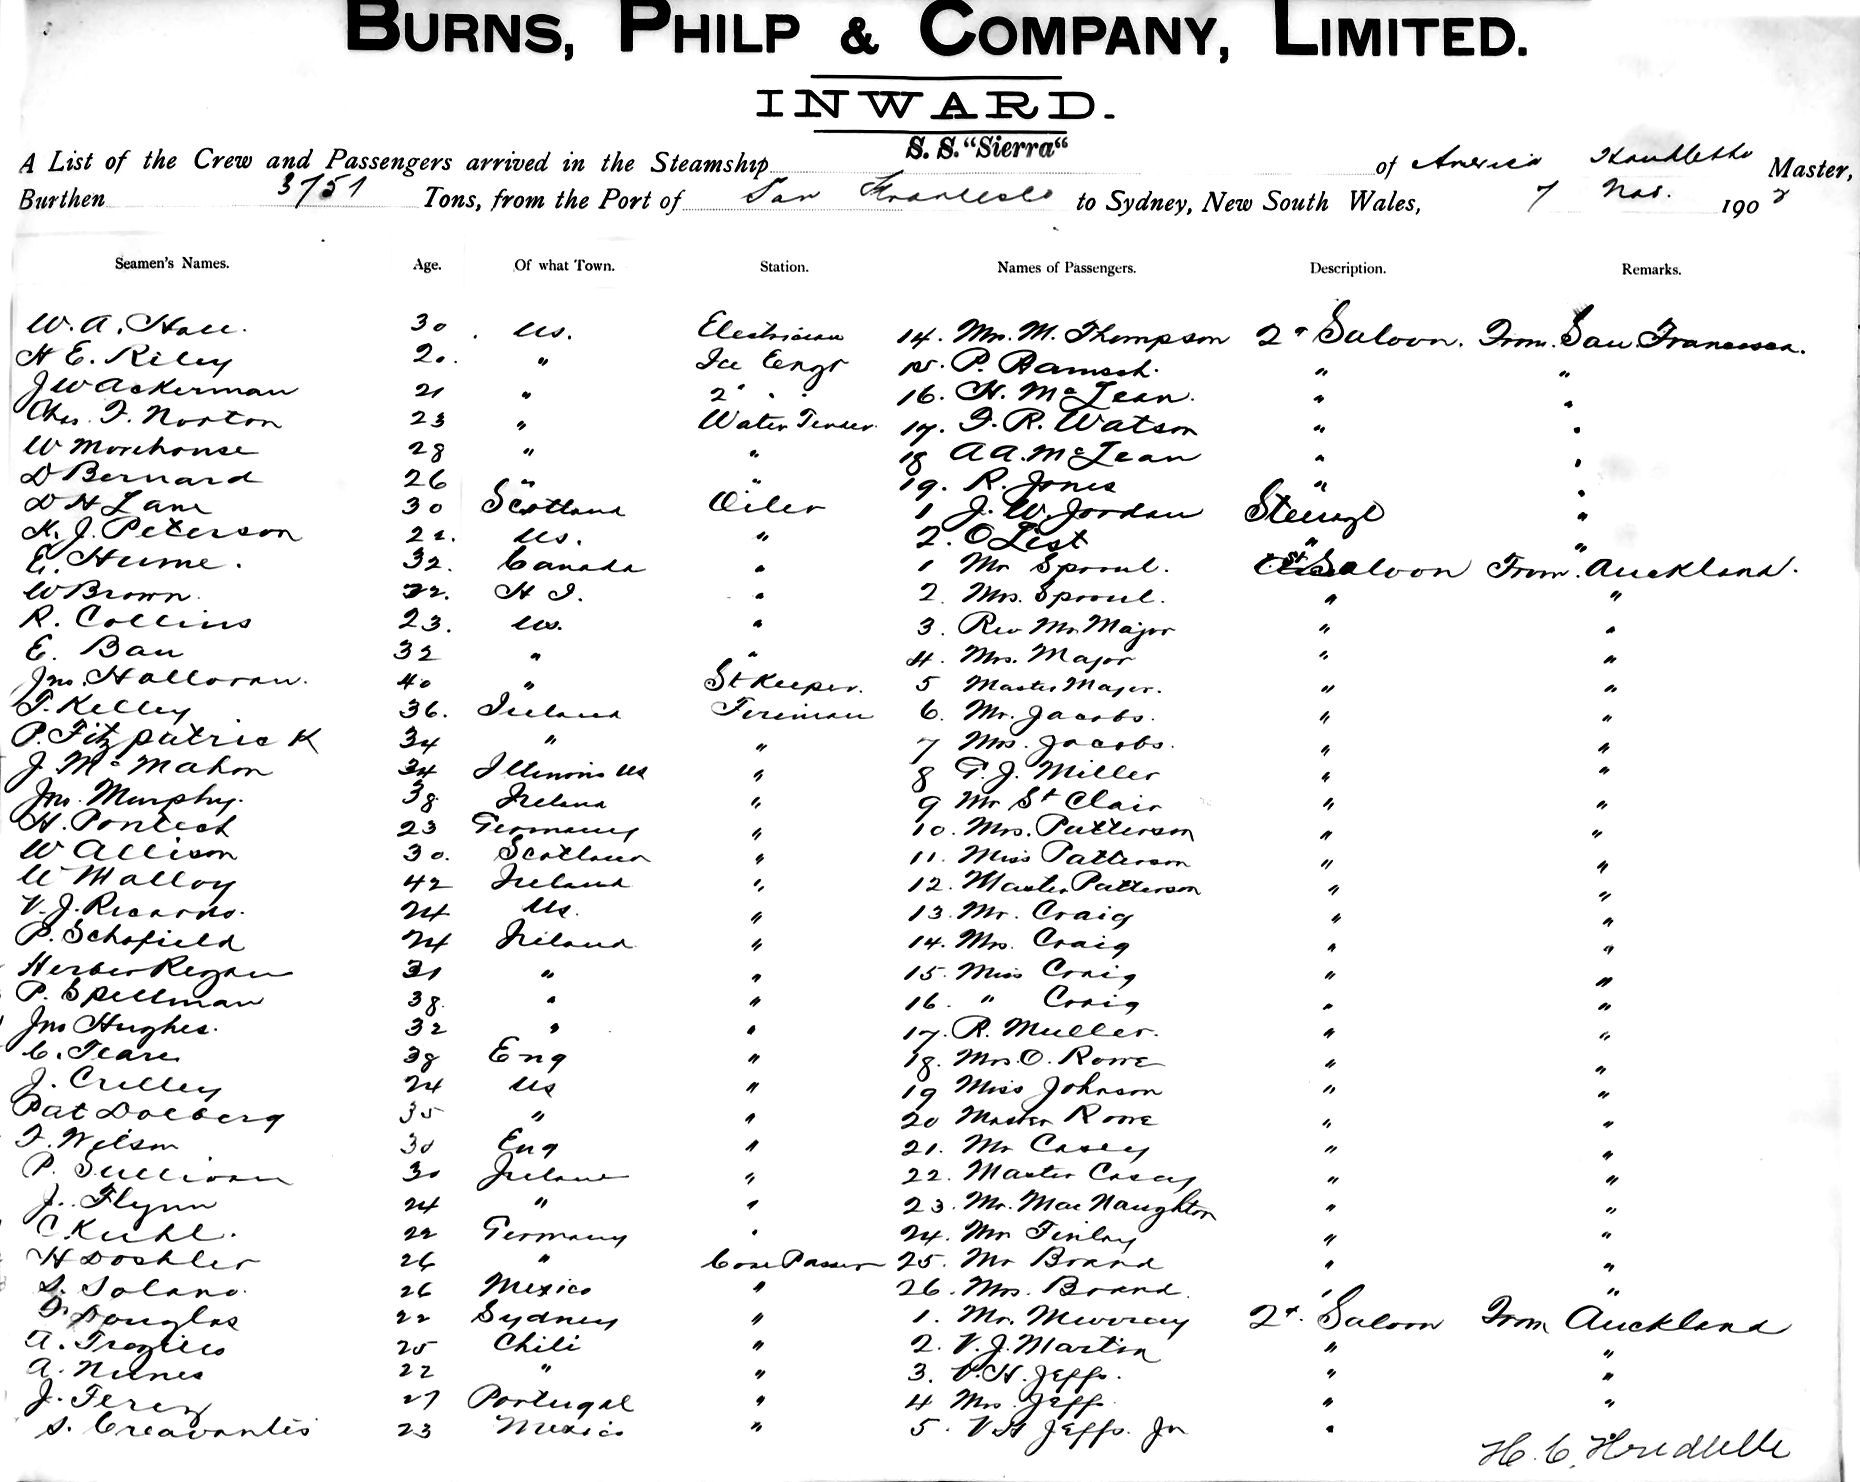 BURNS, PHILP & COMPANY, LIMITED.
INWARD.
S. S. "Sierra"
A List of the Crew and Passengers arrived in the Steamship of America Master,
Burthen 3151 Tons, from the Port of San Francisco to Sydney, New South Wales, 7 Nov. 190
Seamen's Names. Age. Of what Town. Station. Names of Passengers. Description. Remarks.
W. A. Hall. 30 US. Electrician 14. Mr. M. Thompson 2d Saloon. From San Francisco.
H E. Riley 20. " Ice Engr 15. P. Ramsch. " "
J W Ackerman 21 " 2 " " 16. H. McLean. " "
Chas. F. Norton 23 " Water Tender 17. F. R. Watson " "
W Morehouse 28 " " 18 A A. McLean " "
D Bernard 26 " " 19. R. Jones " "
D H Lane 30 Scotland Oiler 1 J. W. Jordan Steerage "
K. J. Peterson 22. US. " 2. O List " "
E. Hume. 32. Canada " 1 Mr Sproul. 1st Saloon From Auckland.
W Brown. 22. H I. " 2. Mrs. Sproul. " "
R. Collins 23. US. " 3. Rev Mr. Major " "
E. Bau 32 " " 4. Mrs. Major " "
Jno. Halloran. 40 " St Keeper. 5 Master Major. " "
T. Kelley 36. Ireland Fireman 6. Mr. Jacobs. " "
P. Fitzpatrick 34 " " 7 Mrs. Jacobs. " "
J. McMahon 34 Illinois US " 8 T. J. Miller " "
Jno. Murphy. 38 Ireland " 9 Mr St Clair " "
H. 23 Germany " 10. Mrs. Patterson " "
W Allison 30. Scotland " 11. Miss Patterson " "
W Malloy 42 Ireland " 12. Master Patterson " "
V. J. 24 US. " 13. Mr. Craig " "
P. Schofield 24 Ireland " 14. Mrs. Craig " "
Regan 31 " " 15. Miss Craig " "
P. Spellman 38 " " 16. " Craig " "
Jno Hughes. 32 " " 17. R. Muller. " "
C. Teare 38 Eng " 18. Mrs. O. Rowe " "
J. Crilley 24 US " 19 Miss Johnson " "
Pat Dolberg 35 " " 20 Master Rowe " "
F. Wilson 30 Eng " 21. Mr Casey " "
P. Sullivan 30 Ireland " 22. Master Casey " "
J. Flynn 24 " " 23. Mr. MacNaughton " "
C. Kuhl. 22 Germany " 24. Mr Finlay " "
H Doshler 26 " Coal Passer 25. Mr Brand " "
S. Solano. 26 Mexico " 26. Mrs. Brand. " "
Douglas 22 Sydney " 1. Mr. Murray 2d. Saloon From Auckland
A. 25 Chili " 2. V. J. Martin " "
A. Nunes 22 " " 3. V. H. Jeffs. " "
J. Ferez 27 Portugal " 4 Mrs. Jeffs. " "
S. 23 Mexico " 5. V H Jeffs. Jr "
H. C.